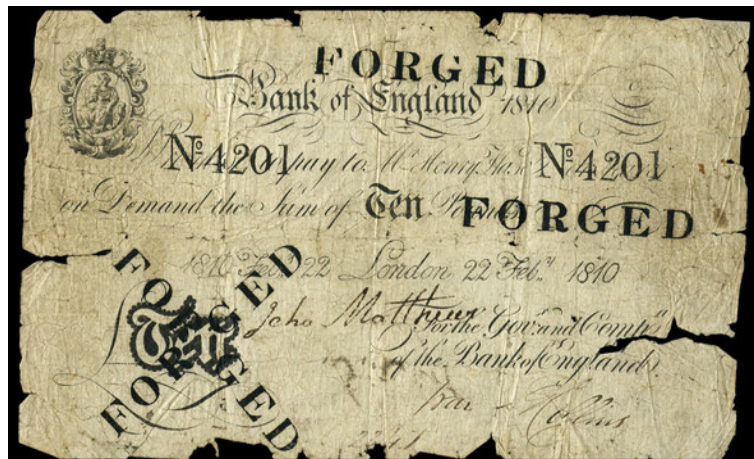 FORGED
Bank of England 1810
Nº4201 pay to Mr Henry Hase Nº4201
on Demand the Sum of Ten Pounds
FORGED
1810 Feby 22 London 22 Feby 1810
FORGED
John Matthews
For the Govr and Compa
Ten
of the Bank of England
FORGED
Collins